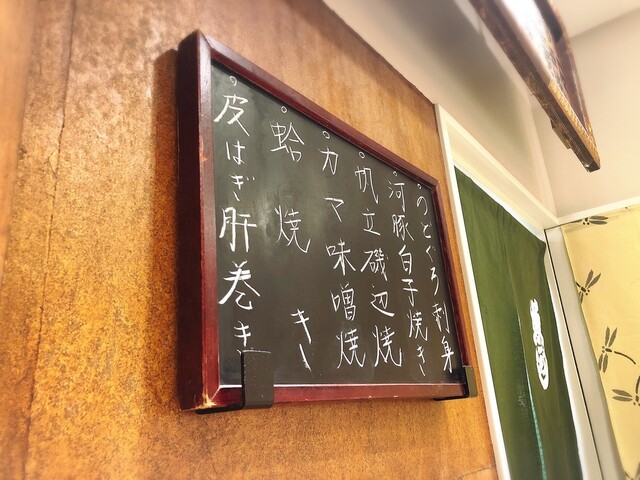 。のどぐろ刺身
。河豚白子焼き
。帆立磯辺焼
。カマ味噌焼
。蛤焼き
。皮はぎ肝巻き